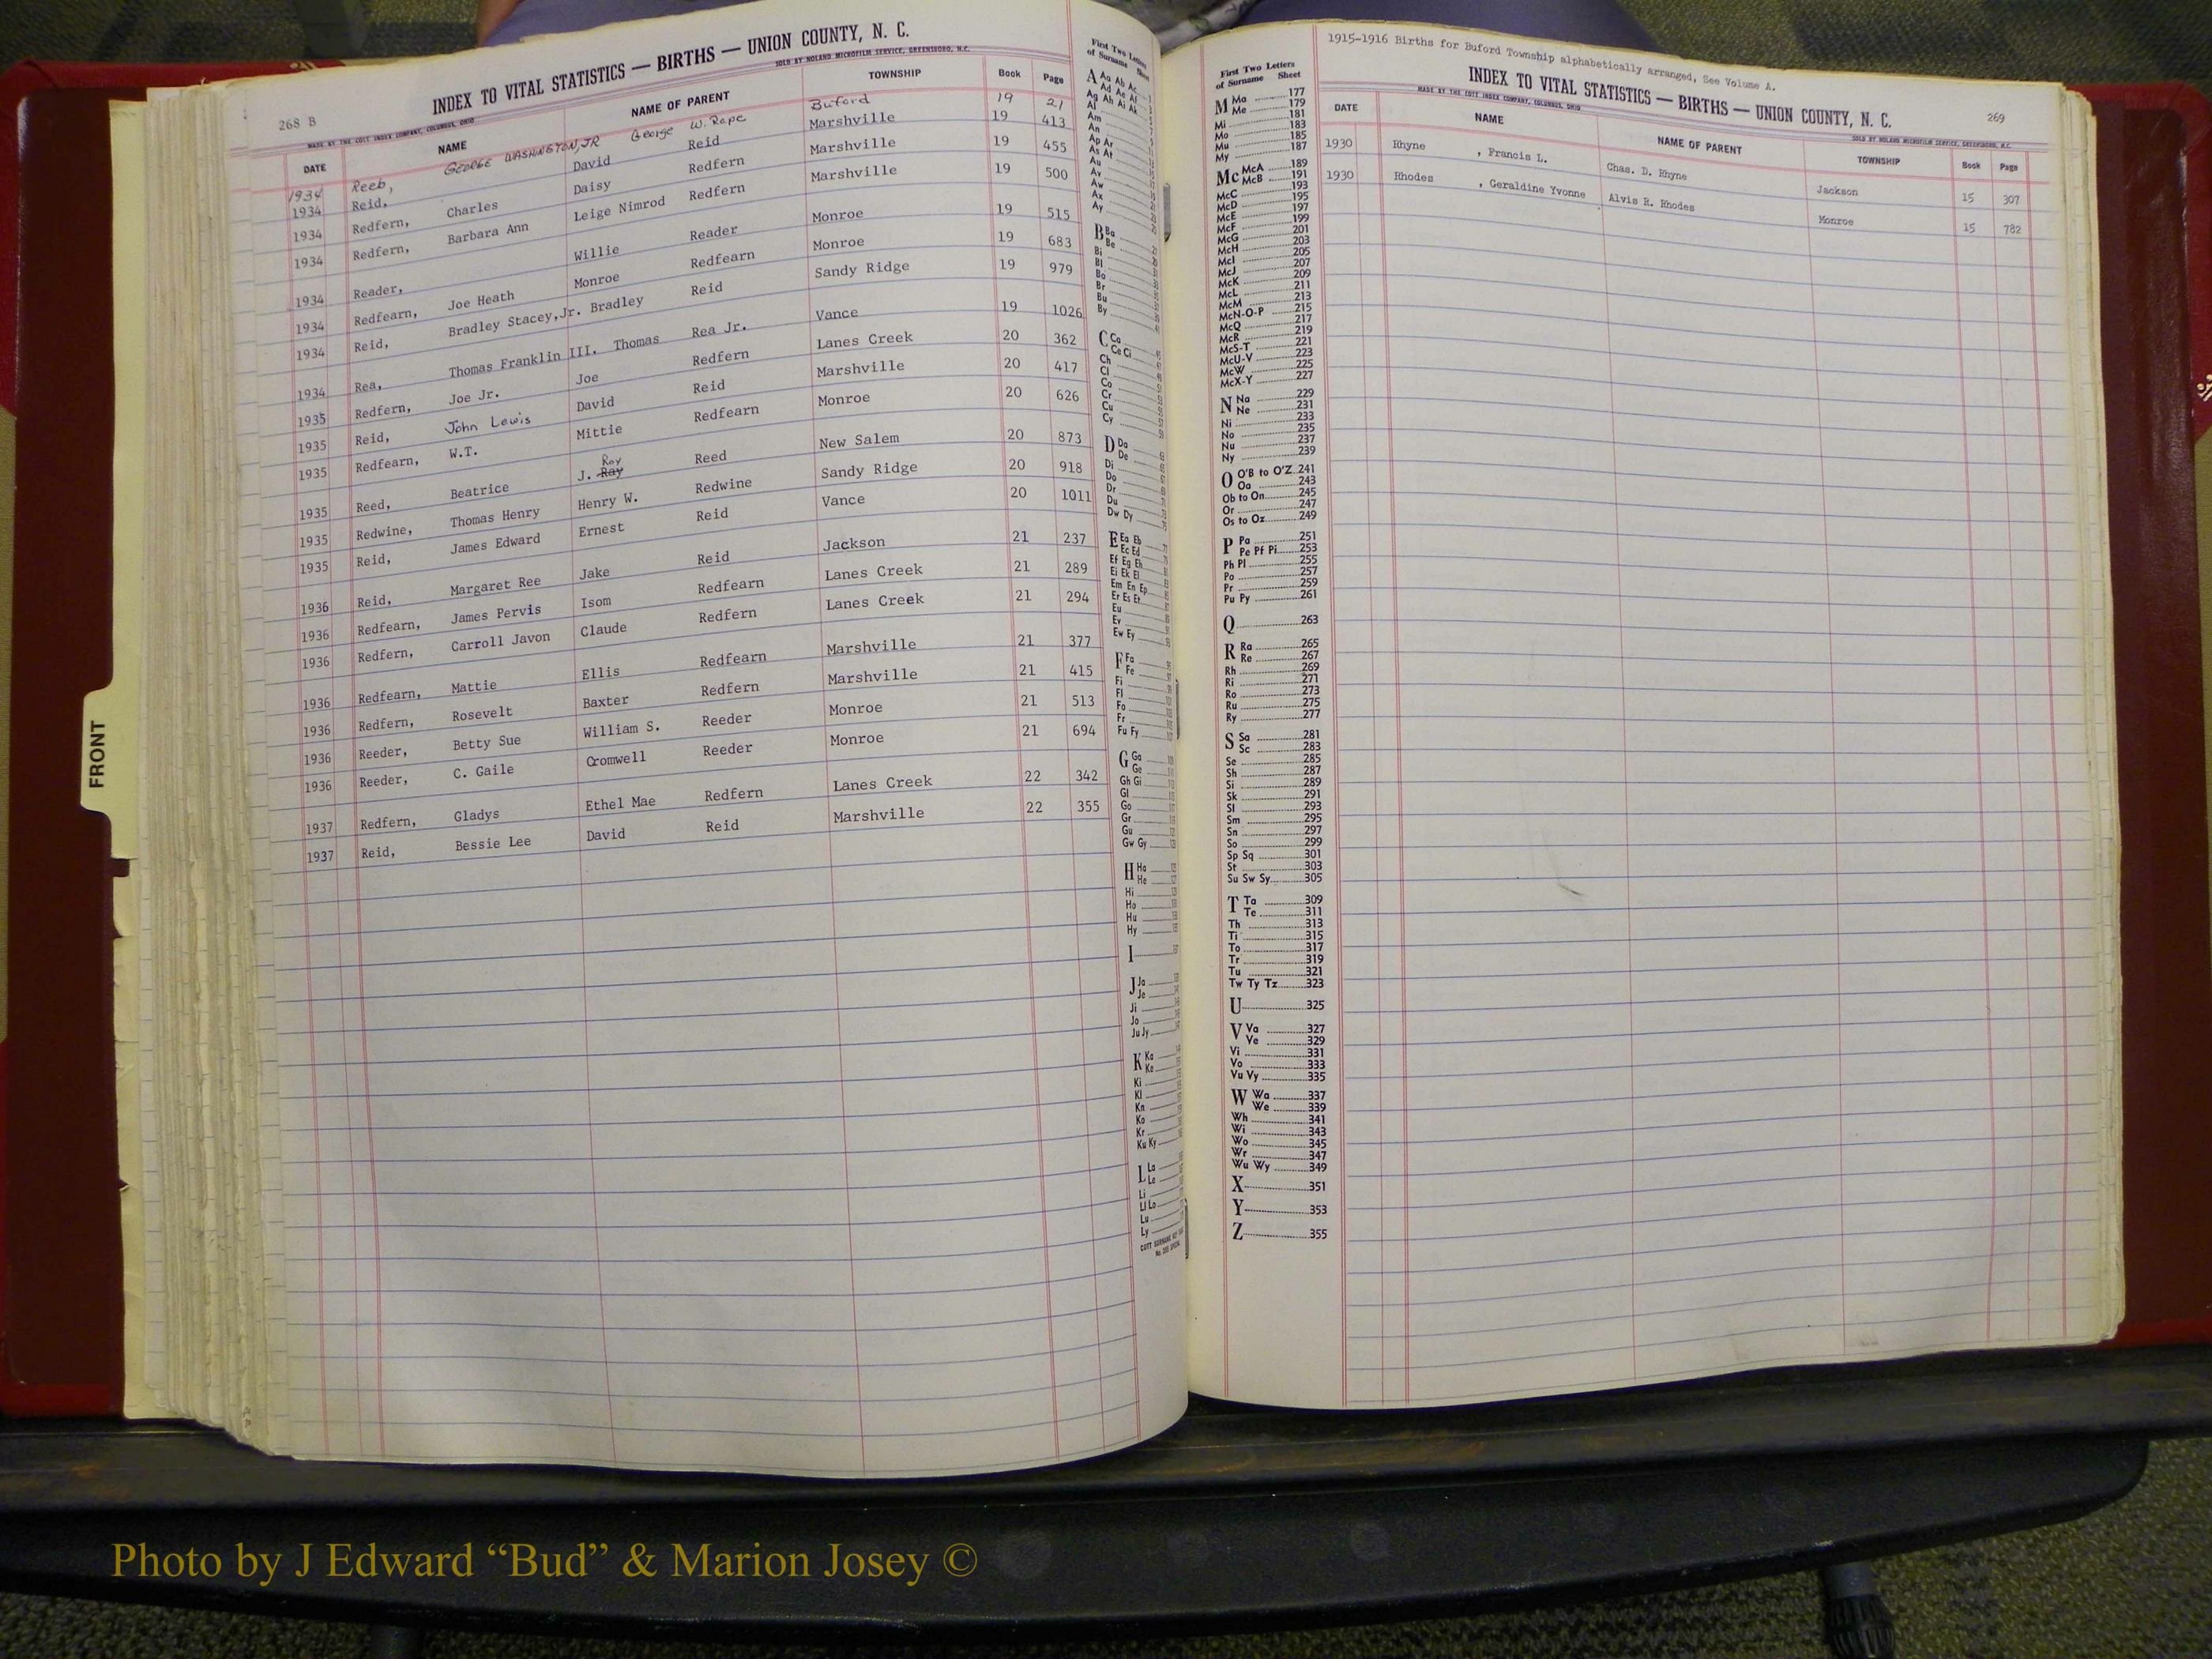 268 B
INDEX TO VITAL STATISTICS — BIRTHS — UNION COUNTY, N. C.
MADE BY THE COTT INDEX COMPANY, COLUMBUS, OHIO SOLD BY NOLAND MICROFILM SERVICE, GREENSBORO, N.C.
DATE NAME NAME OF PARENT TOWNSHIP Book Page
1934 Reeb, GEORGE WASHINGTON, JR George W. Rape Buford 19 21
1934 Reid, David Reid Marshville 19 413
1934 Redfern, Charles Daisy Redfern Marshville 19 455
1934 Redfern, Barbara Ann Leige Nimrod Redfern Marshville 19 500
1934 Reader, Willie Reader Monroe 19 515
1934 Redfearn, Joe Heath Monroe Redfearn Monroe 19 683
1934 Reid, Bradley Stacey,Jr. Bradley Reid Sandy Ridge 19 979
1934 Rea, Thomas Franklin III. Thomas Rea Jr. Vance 19 1026
1935 Redfern, Joe Jr. Joe Redfern Lanes Creek 20 362
1935 Reid, John Lewis David Reid Marshville 20 417
1935 Redfearn, W.T. Mittie Redfearn Monroe 20 626
1935 Reed, Beatrice J. Ray Roy Reed New Salem 20 873
1935 Redwine, Thomas Henry Henry W. Redwine Sandy Ridge 20 918
1935 Reid, James Edward Ernest Reid Vance 20 1011
1936 Reid, Margaret Ree Jake Reid Jackson 21 237
1936 Redfearn, James Pervis Isom Redfearn Lanes Creek 21 289
1936 Redfern, Carroll Javon Claude Redfern Lanes Creek 21 294
1936 Redfearn, Mattie Ellis Redfearn Marshville 21 377
1936 Redfern, Rosevelt Baxter Redfern Marshville 21 415
1936 Reeder, Betty Sue William S. Reeder Monroe 21 513
1936 Reeder, C. Gaile Cromwell Reeder Monroe 21 694
1937 Redfern, Gladys Ethel Mae Redfern Lanes Creek 22 342
1937 Reid, Bessie Lee David Reid Marshville 22 355
FRONT
First Two Letters
of Surname Sheet
A Aa Ab Ac
Ad Ae Af
Ag Ah Ai Ak
Al
Am
An
Ap Ar
As At
Au
Av
Aw
Ax
Ay
B Ba
Be
Bi
Bl
Bo
Br
Bu
By
C Ca
Ce Ci
Ch
Cl
Co
Cr
Cu
Cy
D Da
De
Di
Do
Dr
Du
Dw Dy
E Ea Eb
Ec Ed
Ef Eg Eh
Ei Ek El
Em En Ep
Er Es Et
Eu
Ev
Ew Ey
F Fa
Fe
Fi
Fl
Fo
Fr
Fu Fy
G Ga
Ge
Gh Gi
Gl
Go
Gr
Gu
Gw Gy
H Ha
He
Hi
Ho
Hu
Hy
I
J Ja
Je
Ji
Jo
Ju Jy
K Ka
Ke
Ki
Kl
Kn
Ko
Kr
Ku Ky
L La
Le
Li
Ll Lo
Lu
Ly
First Two Letters
of Surname Sheet
M Ma 177
Me 179
Mi 181
Mo 183
Mu 185
My 187
Mc McA 189
McB 191
McC 193
McD 195
McE 197
McF 199
McG 201
McH 203
McI 205
McJ 207
McK 209
McL 211
McM 213
McN-O-P 215
McQ 217
McR 219
McS-T 221
McU-V 223
McW 225
McX-Y 227
N Na 229
Ne 231
Ni 233
No 235
Nu 237
Ny 239
O O'B to O'Z 241
Oa 243
Ob to On 245
Or 247
Os to Oz 249
P Pa 251
Pe Pf Pi 253
Ph Pl 255
Po 257
Pr 259
Pu Py 261
Q 263
R Ra 265
Re 267
Rh 269
Ri 271
Ro 273
Ru 275
Ry 277
S Sa 281
Sc 283
Se 285
Sh 287
Si 289
Sk 291
Sl 293
Sm 295
Sn 297
So 299
Sp Sq 301
St 303
Su Sw Sy 305
T Ta 309
Te 311
Th 313
Ti 315
To 317
Tr 319
Tu 321
Tw Ty Tz 323
U 325
V Va 327
Ve 329
Vi 331
Vo 333
Vu Vy 335
W Wa 337
We 339
Wh 341
Wi 343
Wo 345
Wr 347
Wu Wy 349
X 351
Y 353
Z 355
1915-1916 Births for Buford Township alphabetically arranged, See Volume A.
INDEX TO VITAL STATISTICS — BIRTHS — UNION COUNTY, N. C. 269
MADE BY THE COTT INDEX COMPANY, COLUMBUS, OHIO SOLD BY NOLAND MICROFILM SERVICE, GREENSBORO, N.C.
DATE NAME NAME OF PARENT TOWNSHIP Book Page
1930 Rhyne , Francis L. Chas. D. Rhyne Jackson 15 307
1930 Rhodes , Geraldine Yvonne Alvis R. Rhodes Monroe 15 782
Photo by J Edward “Bud” & Marion Josey ©